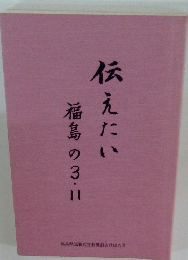 伝えたい
福島の3・11